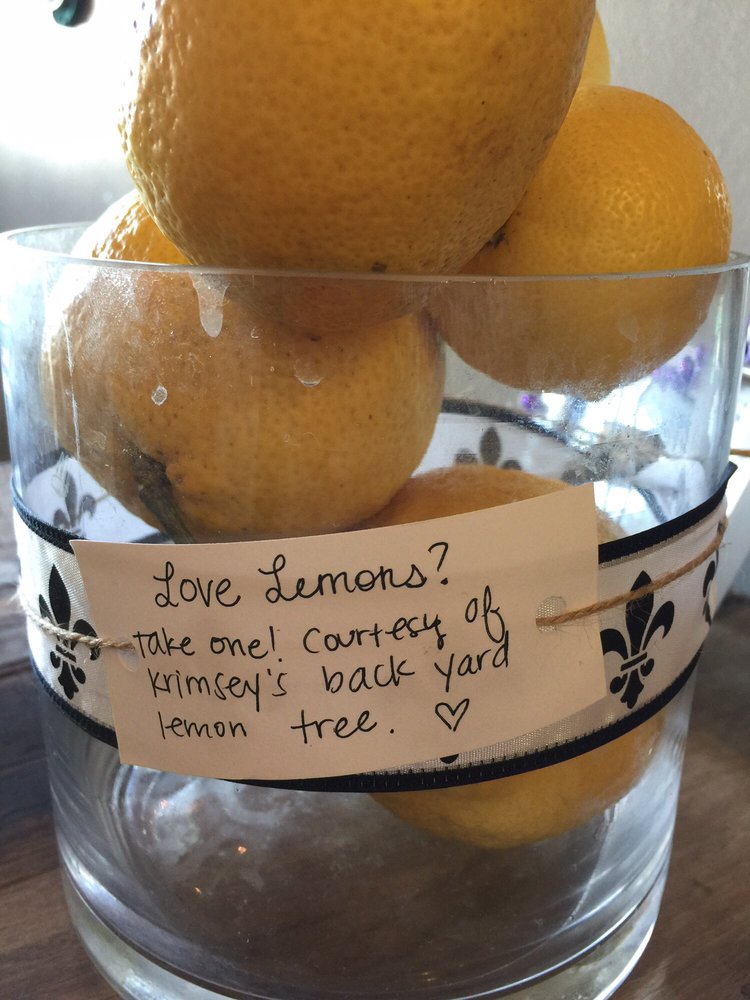 Love Lemons?
take one! Courtesy of
krimsey's back yard
lemon tree. ♡